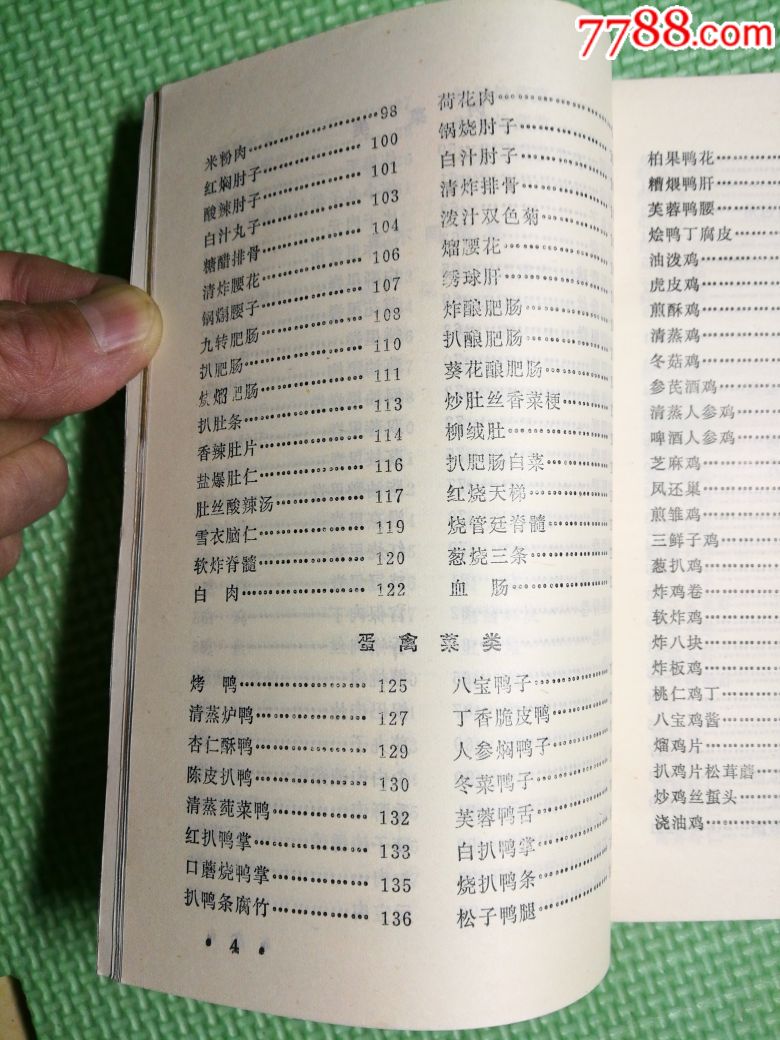 7788.com
米粉肉…………98
红焖肘子…………100
酸辣肘子…………101
白汁丸子…………103
糖醋排骨…………104
清炸腰花…………106
锅㷶腰子…………107
九转肥肠…………108
扒肥肠…………110
熘肥肠…………111
扒肚条…………113
香辣肚片…………114
盐爆肚仁…………116
肚丝酸辣汤…………117
雪衣脑仁…………119
软炸脊髓…………120
白 肉…………122
荷花肉…………
锅烧肘子…………
白汁肘子…………
清炸排骨…………
泼汁双色菊…………
熘腰花…………
绣球肝…………
炸酿肥肠…………
扒酿肥肠…………
葵花酿肥肠…………
炒肚丝香菜梗…………
柳绒肚…………
扒肥肠白菜…………
红烧天梯…………
烧管廷脊髓…………
葱烧三条…………
血 肠…………
蛋禽菜类
烤 鸭…………125
清蒸炉鸭…………127
杏仁酥鸭…………129
陈皮扒鸭…………130
清蒸莼菜鸭…………132
红扒鸭掌…………133
口蘑烧鸭掌…………135
扒鸭条腐竹…………136
八宝鸭子…………
丁香脆皮鸭…………
人参焖鸭子…………
冬菜鸭子…………
芙蓉鸭舌…………
白扒鸭掌…………
烧扒鸭条…………
松子鸭腿…………
·4·
柏果鸭花…………
糟煨鸭肝…………
芙蓉鸭腰…………
烩鸭丁腐皮…………
油泼鸡…………
虎皮鸡…………
煎酥鸡…………
清蒸鸡…………
冬菇鸡…………
参芪酒鸡…………
清蒸人参鸡…………
啤酒人参鸡…………
芝麻鸡…………
凤还巢…………
煎雏鸡…………
三鲜子鸡…………
葱扒鸡…………
炸鸡卷…………
软炸鸡…………
炸八块…………
炸板鸡…………
桃仁鸡丁…………
八宝鸡酱…………
熘鸡片…………
扒鸡片松茸蘑…………
炒鸡丝蜇头…………
浇油鸡…………